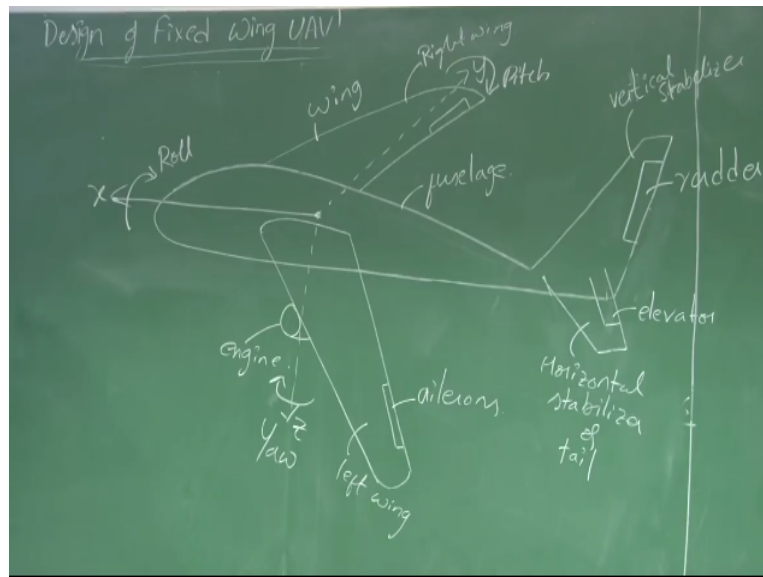 Design of Fixed Wing UAV
Right wing
y
Pitch
wing
vertical
stabelizer
Roll
x
fuselage.
rudder
elevator
engine.
Horizontal
stabilizer
of
tail
ailerons
z
Yaw
left wing